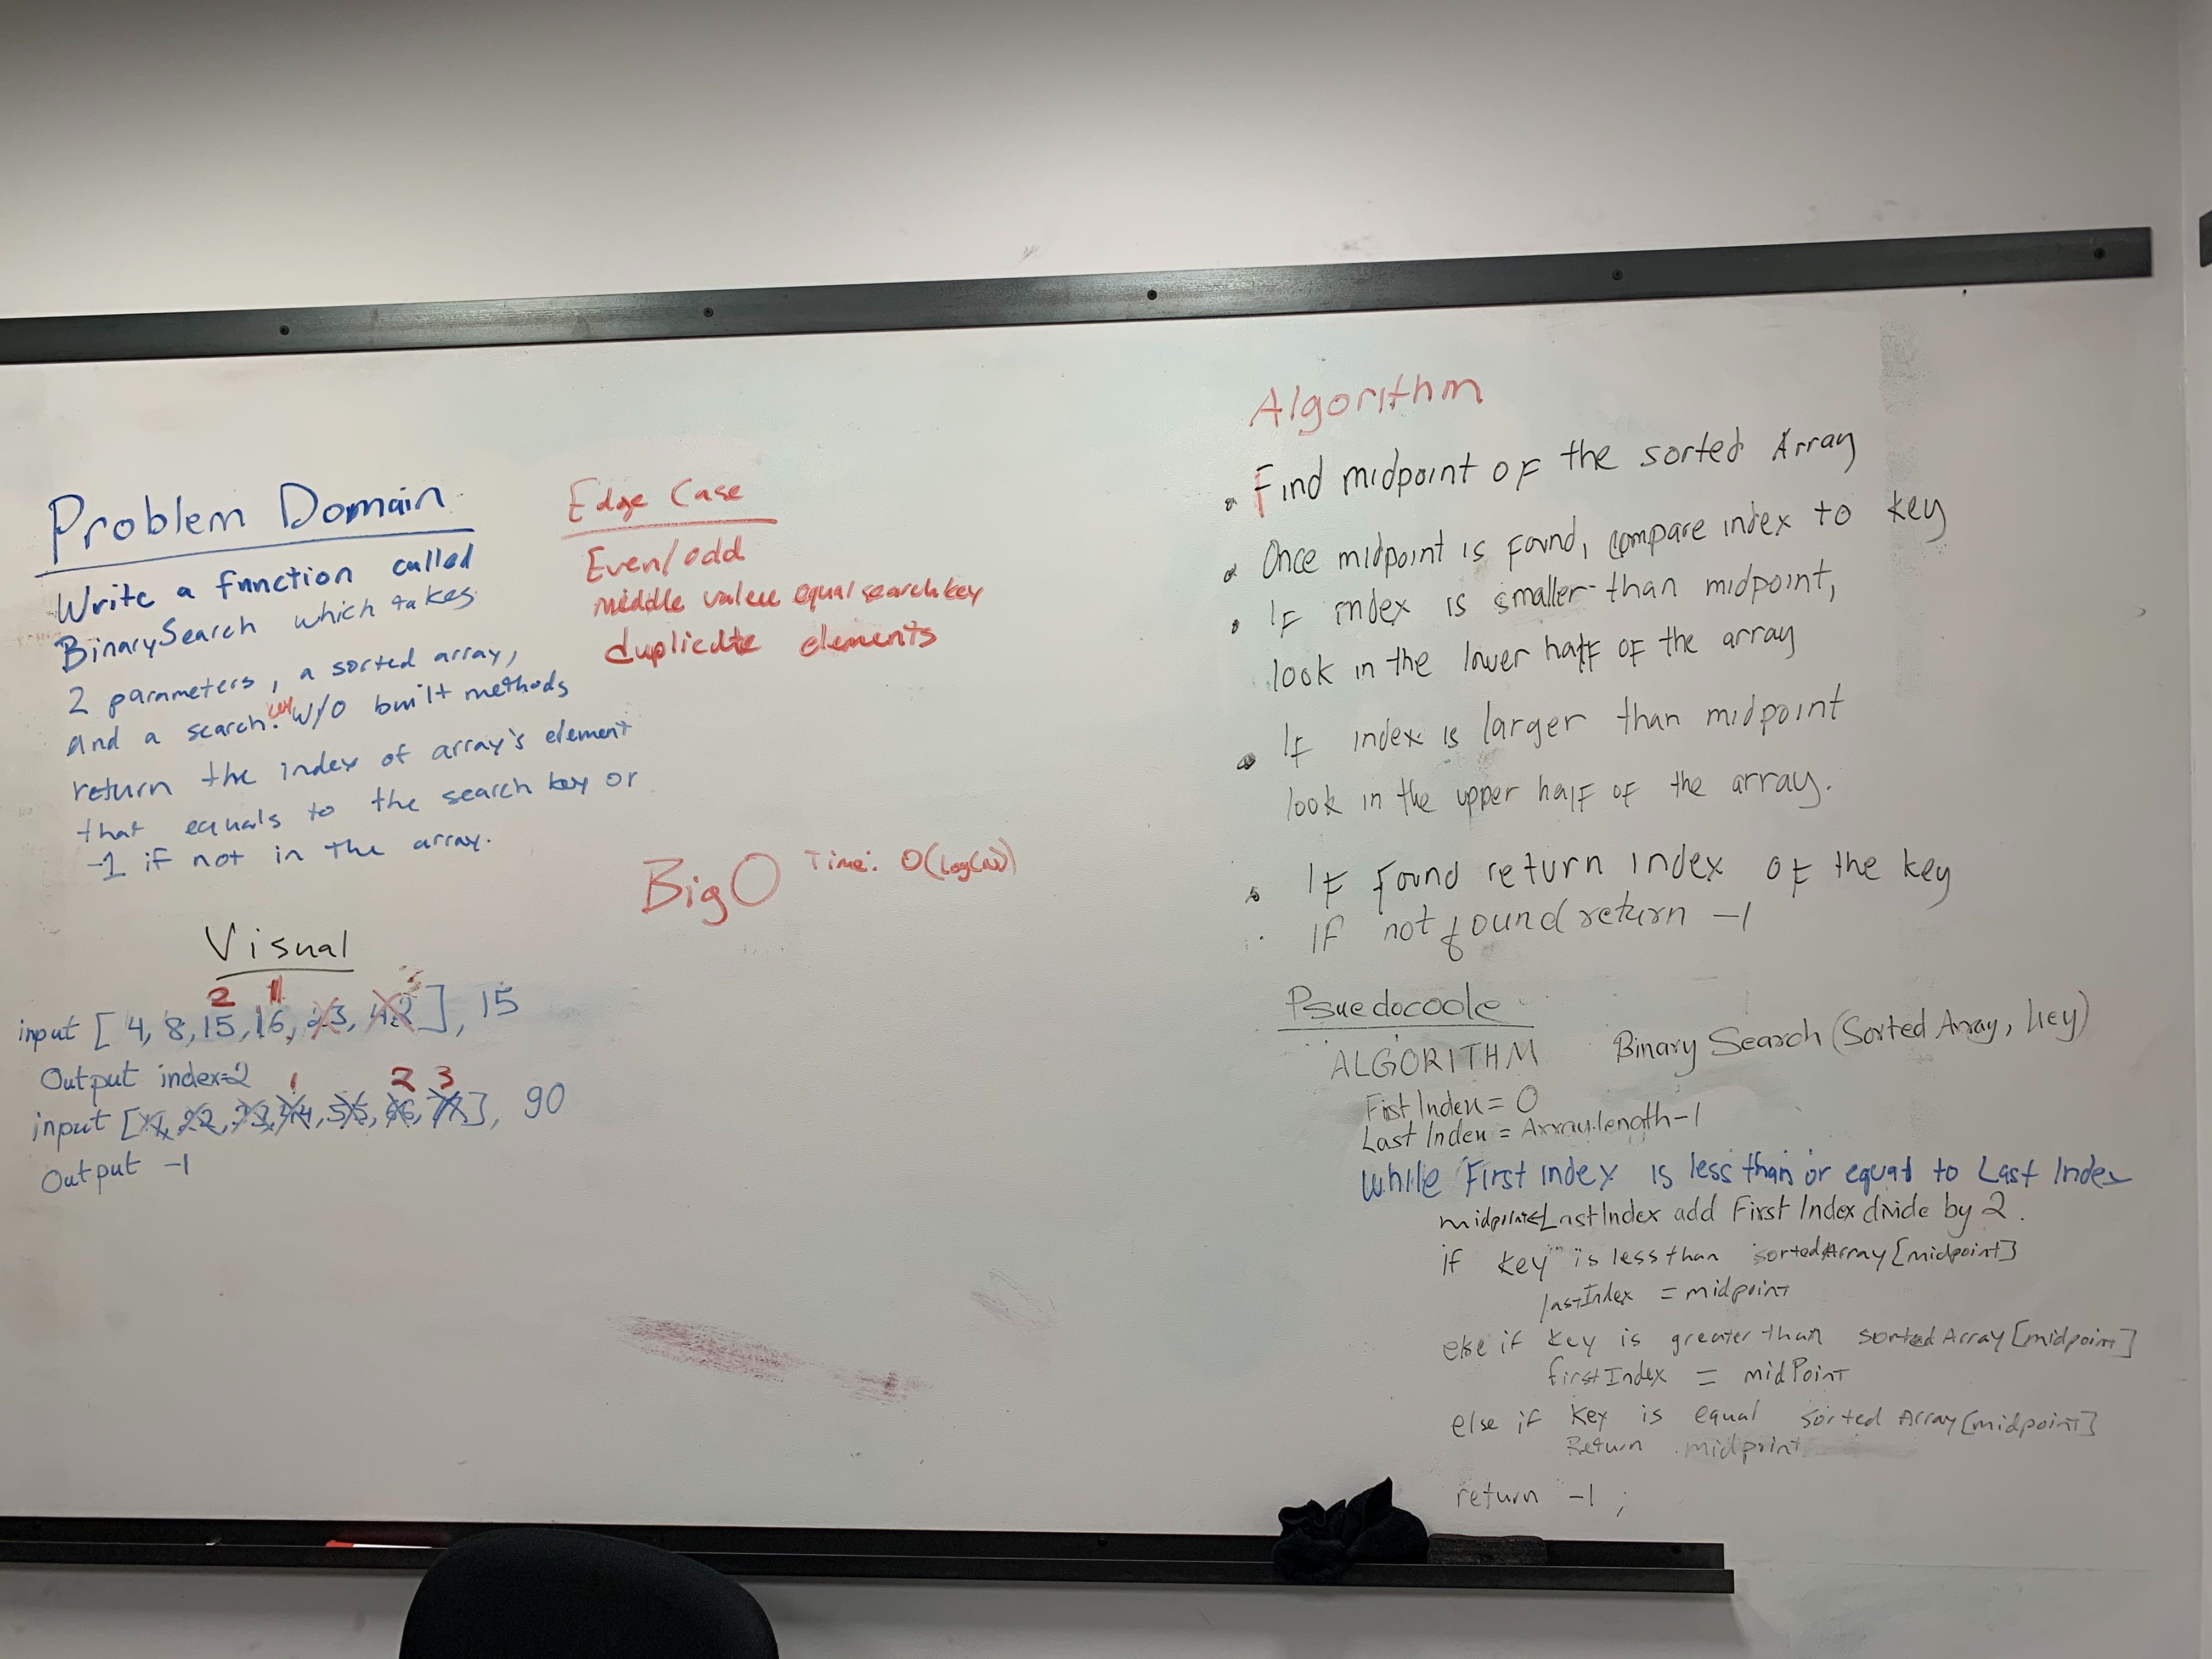 Problem Domain
Write a function called
BinarySearch which takes
2 parameters, a sorted array,
and a search key w/o built methods
return the index of array's element
that equals to the search key or
-1 if not in the array.
Edge Case
Even/odd
middle value equal search key
duplicate elements
Big O Time: O(log(n))
Visual
2 1
input [4, 8, 15, 16, 23, 42], 15
Output index=2
1 2 3
input [11, 22, 33, 44, 55, 66, 77], 90
Output -1
Algorithm
Find midpoint of the sorted Array
Once midpoint is found, compare index to key
If index is smaller than midpoint,
look in the lower half of the array
If index is larger than midpoint
look in the upper half of the array.
If found return index of the key
if not found return -1
Psuedocode
ALGORITHM Binary Search (Sorted Array, key)
Fist Index = 0
Last Index = Array.length-1
While First index is less than or equal to Last Index
midpoint<LastIndex add First Index divide by 2.
if key is less than sortedArray[midpoint]
lastIndex = midpoint
else if key is greater than sorted Array[midpoint]
firstIndex = midPoint
else if key is equal sorted Array[midpoint]
Return midpoint
return -1;